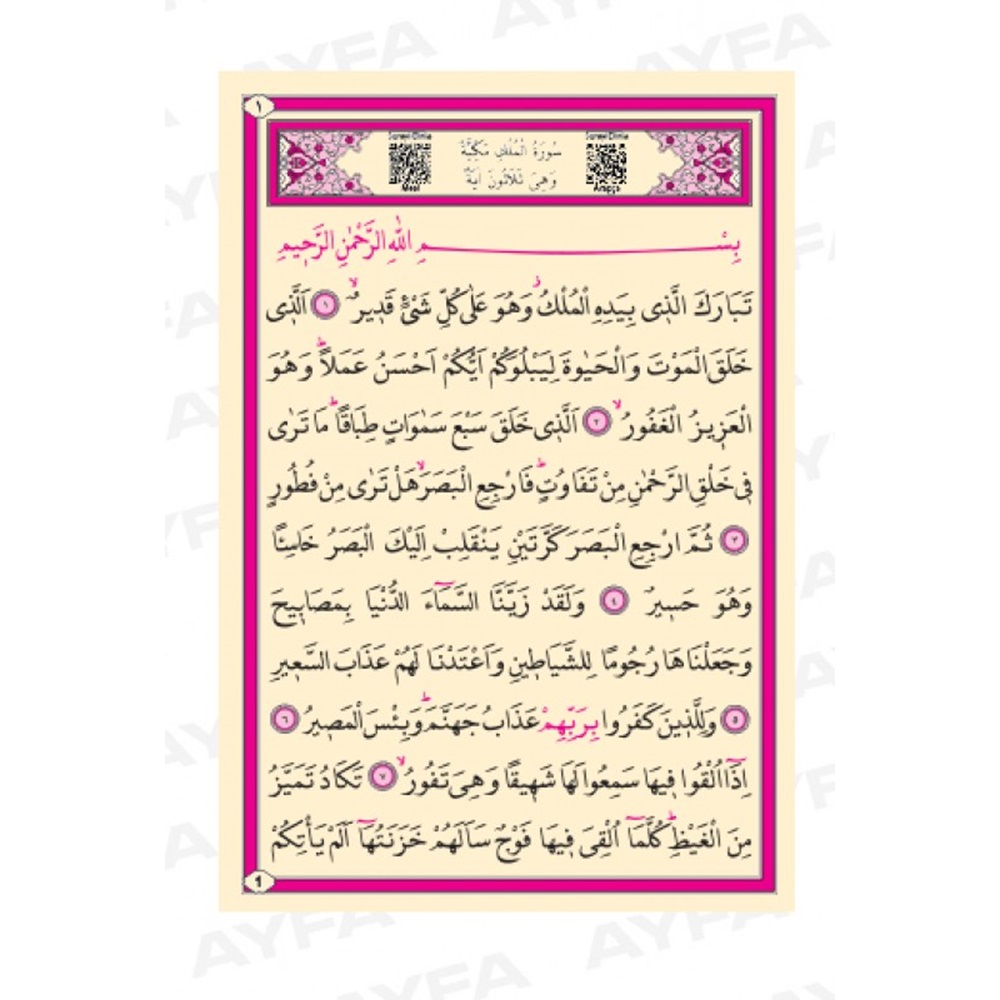 AYFA
١
سُورَةُ الْمُلْكِ مَكِّيَّةٌ
وَهِىَ ثَلَاثُونَ اٰيَةً
Meal
Arapça
بِسْمِ اللّٰهِ الرَّحْمٰنِ الرَّحٖيمِ
تَبَارَكَ الَّذٖى بِيَدِهِ الْمُلْكُؗ وَهُوَ عَلٰى كُلِّ شَىْءٍ قَدٖيرٌۙ ﴿١﴾ اَلَّذٖى
خَلَقَ الْمَوْتَ وَالْحَيٰوةَ لِيَبْلُوَكُمْ اَيُّكُمْ اَحْسَنُ عَمَلًاؕ وَهُوَ
الْعَزٖيزُ الْغَفُورُۙ ﴿٢﴾ اَلَّذٖى خَلَقَ سَبْعَ سَمٰوَاتٍ طِبَاقًاؕ مَا تَرٰى
فٖى خَلْقِ الرَّحْمٰنِ مِنْ تَفَاوُتٍؕ فَارْجِعِ الْبَصَرَۙ هَلْ تَرٰى مِنْ فُطُورٍ
﴿٣﴾ ثُمَّ ارْجِعِ الْبَصَرَ كَرَّتَيْنِ يَنْقَلِبْ اِلَيْكَ الْبَصَرُ خَاسِئًا
وَهُوَ حَسٖيرٌ ﴿٤﴾ وَلَقَدْ زَيَّنَّا السَّمَٓاءَ الدُّنْيَا بِمَصَابٖيحَ
وَجَعَلْنَاهَا رُجُومًا لِلشَّيَاطٖينِ وَاَعْتَدْنَا لَهُمْ عَذَابَ السَّعٖيرِ
﴿٥﴾ وَلِلَّذٖينَ كَفَرُوا بِرَبِّهِمْ عَذَابُ جَهَنَّمَؕ وَبِئْسَ الْمَصٖيرُ ﴿٦﴾
اِذَٓا اُلْقُوا فٖيهَا سَمِعُوا لَهَا شَهٖيقًا وَهِىَ تَفُورُۙ ﴿٧﴾ تَكَادُ تَمَيَّزُ
مِنَ الْغَيْظِؕ كُلَّمَٓا اُلْقِىَ فٖيهَا فَوْجٌ سَاَلَهُمْ خَزَنَتُهَٓا اَلَمْ يَأْتِكُمْ
1